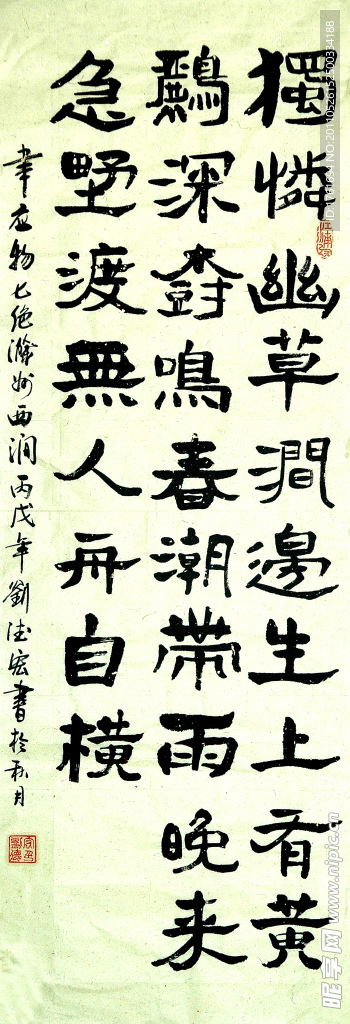 獨憐幽草澗邊生上有黃
鸝深樹鳴春潮帶雨晚来
急野渡無人舟自橫
韋應物七絕滁州西澗丙戌年劉德宏書於秋月
昵享网 www.nipic.cn